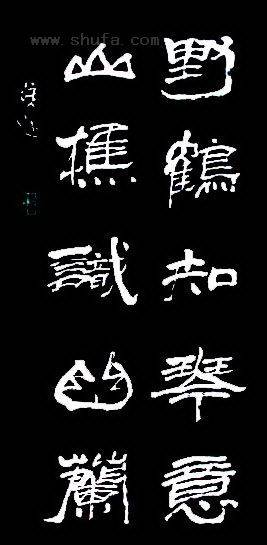 www.shufa.com
野鶴知琴意
山樵識幽蘭